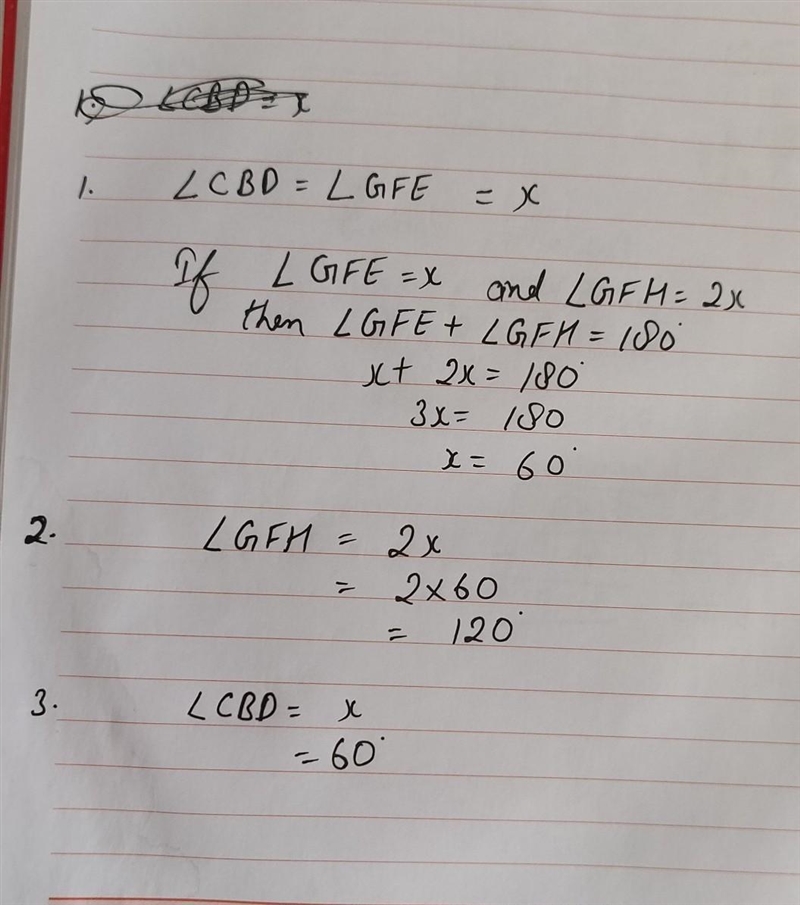 1. ∠CBD = x
1. ∠CBD = ∠GFE = x
If ∠GFE = x and ∠GFH = 2x
then ∠GFE + ∠GFH = 180°
x + 2x = 180°
3x = 180
x = 60°
2. ∠GFH = 2x
= 2×60
= 120°
3. ∠CBD = x
= 60°